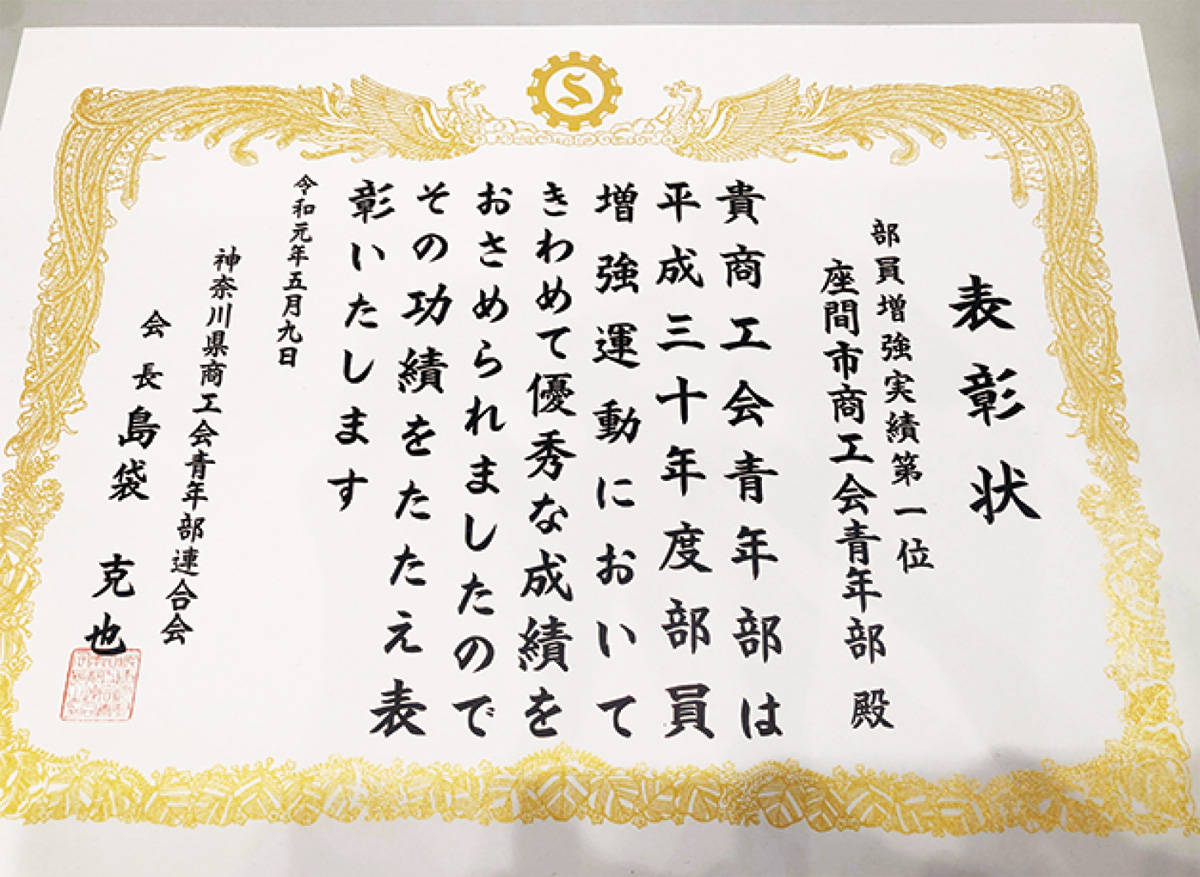 S
表彰状
部員増強実績第一位
座間市商工会青年部 殿
貴商工会青年部は
平成三十年度部員
増強運動において
きわめて優秀な成績を
おさめられましたので
その功績をたたえ表
彰いたします
令和元年五月九日
神奈川県商工会青年部連合会
会長 島袋 克也